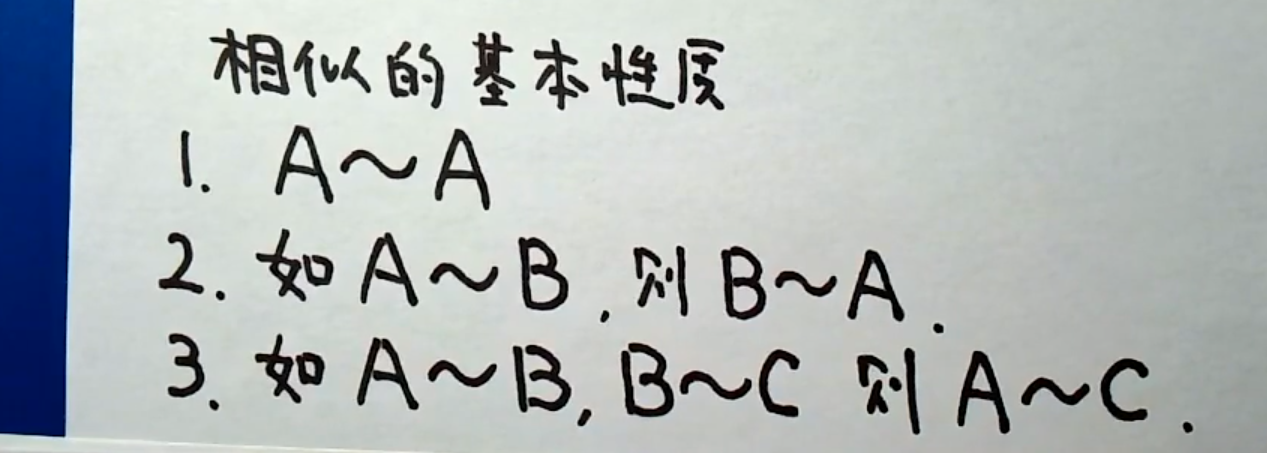 相似的基本性质
1. A~A
2. 如 A~B, 则 B~A.
3. 如 A~B, B~C 则 A~C.